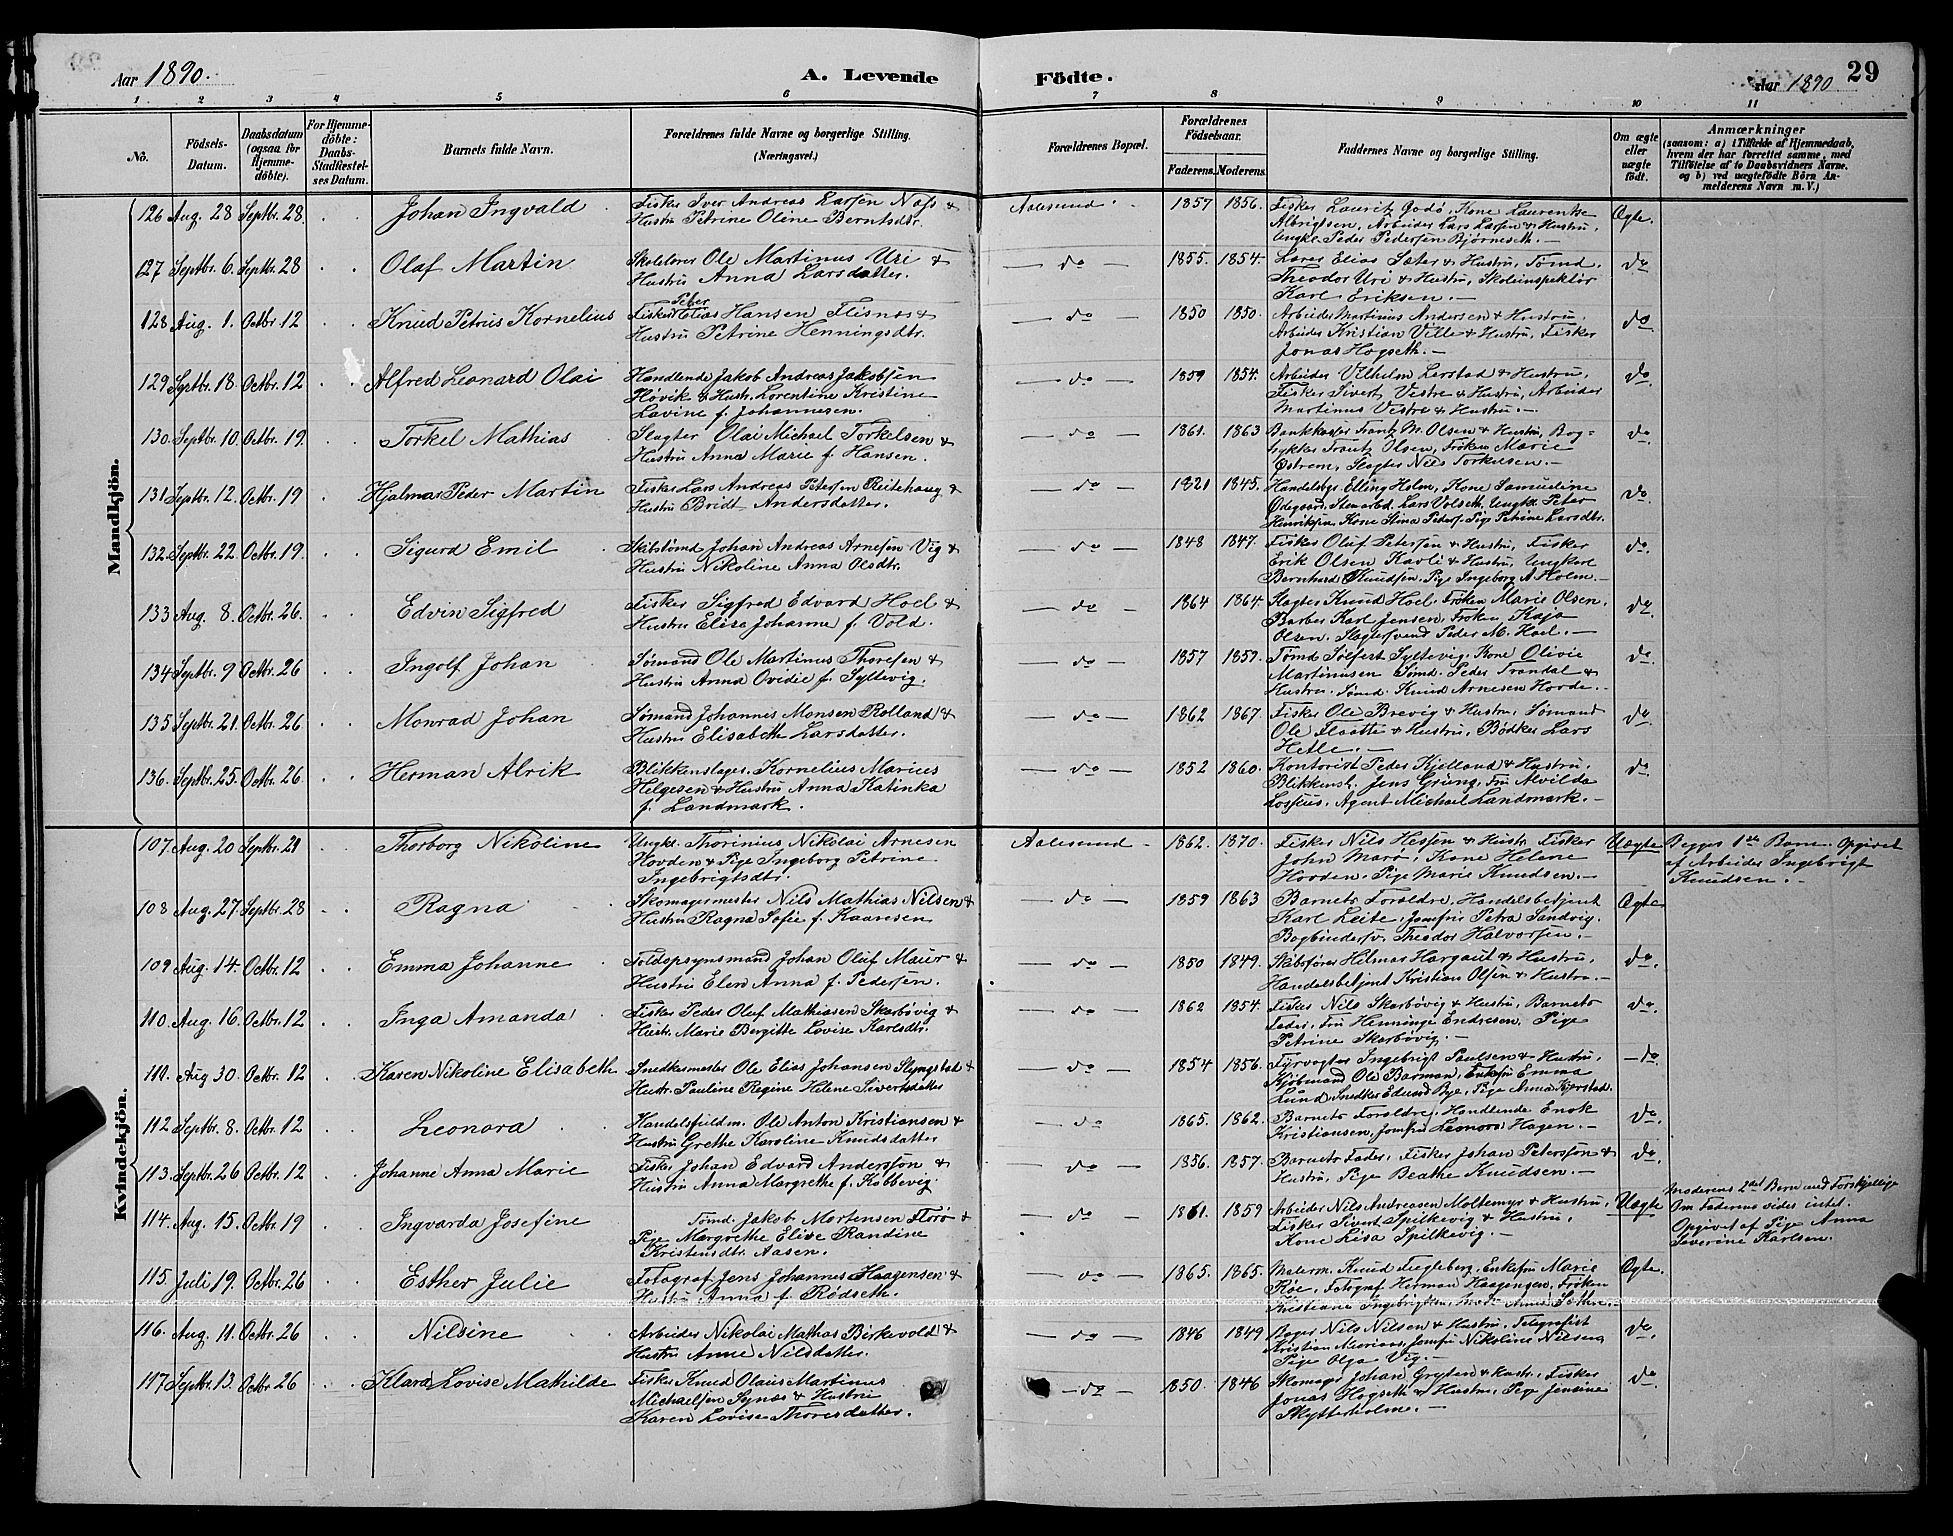 Aar 1890. A. Levende Födte. Aar 1890 29
1 2 3 4 5 6 7 8 9 10 11
No. Födsels-Datum. Daabsdatum (ogsaa for Hjemmedöbte). For Hjemmedöbte: Daabs-Stadfæstelses Datum. Barnets fulde Navn. Forældrenes fulde Navne og borgerlige Stilling. (Næringsvei.) Forældrenes Bopæl. Forældrenes Födselsaar. Faderens. Moderens. Faddernes Navne og borgerlige Stilling. Om ægte eller uægte födt. Anmærkninger (saasom: a) i Tilfælde af Hjemmedaab, hvem der har forrettet samme, med Tilföielse af to Daabsvidners Navne, og b) ved uægtefödte Börn Anmelderens Navn m. V.)
Mandkjön.
126 Aug. 28 Septbr. 28. Johan Ingvald Fisker Iver Andreas Larsen Næs & Aalesund. 1857 1856. Fisker Lauritz Godö, Kone Laurentse Ægte.
Hustru Petrine Oline Berntsdtr. Albrigtsen, Arbeider Lars Larsen & Hustru,
Ungk. Peder Pedersen Bjørneseth.
127 Septbr. 6. Septbr. 28 Olaf Martin Skolelærer Ole Martinus Uri & do 1855. 1854. Lærer Elias Sæter & Hustru, Tømd. do
Hustru Anna Larsdatter. Theodor Uri & Hustru, Skoleinspektør
Karl Eriksen.
128 Aug. 1. Octbr. 12 Knud Petrus Kornelius Fisker Peter Elias Hansen Flisnes & do 1850 1850. Arbeider Martinus Andersen & Hustru, do
Hustru Petrine Henningsdtr. Arbeider Kristian Ville & Hustru, Fisker
Jonas Hogseth.
129 Septbr. 18. Octbr. 12 Alfred Leonard Olai Handlende Jakob Andreas Jakobsen do 1859 1854. Arbeider Vilhelm Lerstad & Hustru, do
Hovik & Hustr. Lorentine Kristine Fisker Sivert Vestre & Hustru, Arbeider
Lavine f. Johannesen. Martinus Vestre & Hustru.
130. Septbr. 10. Octbr. 19. Torkel Mathias Slagter Olai Michael Torkelsen & do 1861. 1863 Bankkasser Frantz M. Olsen & Hustru, Bog- do
Hustru Anna Marie f. Hansen. trykker Frantz Olsen, Frøken Marie
Østrem, Slagter Nils Torkelsen.
131. Septbr. 12. Octbr. 19 Hjalmar Peder Martin Fisker Lars Andreas Petersen Reitehaug & do 1821 1845. Handelsbgr. Elling Holm, Kone Samueline do.
Hustru Bridt Andersdatter. Ødegaard, Stenarbd. Lars Volseth, Ungk. Peter
Henriksen, Kone Stina Peders. Pige Petrine Larsdtr.
132. Septbr. 22 Octbr. 19. Sigurd Emil Skibstømd. Johan Andreas Arnesen Vig & do 1848 1847. Fisker Oluf Petersen & Hustru, Fisker do.
Hustru Nikoline Anna Olsdtr. Erik Olsen Kavli & Hustru, Ungkarl
Bernhard Knudsen, Pige Ingeborg A Holm.
133 Aug. 8. Octbr. 26. Edvin Sigfred Fisker Sigfred Edvard Hoel & do 1864 1864. Slagter Knud Hoel, Frøken Marie Olsen, do.
Hustru Elise Johanne f. Vold. Barber Karl Jensen, Frøken Kaja
Olsen, Slagtersvend Peder M. Hoel.
134 Septbr. 9 Octbr. 26 Ingolf Johan Sømand Ole Martinus Thoresen & do 1857 1859. Tømd. Sølfert Syltevig, Kone Olivie do
Hustru Anna Ovidie f. Syltevig. Martinusen Sømd. Peder Trandal &
Hustru. Sømd. Knud Arnesen Horde.
135 Septbr. 21. Octbr. 26 Monrad Johan Sømand Johannes Monsen Rolland & do 1862 1867. Fisker Ole Brevig & Hustru, Sømand do
Hustru Elisabeth Larsdatter. Ole Flaatte & Hustru, Bødker Lars
Hetle.
136. Septbr. 25. Octbr. 26 Herman Alrik Blikkenslager Kornelius Marius do 1852 1860. Kontorist Peder Kjelland & Hustru, do
Helgesen & Hustru Anna Katinka Blikkensl. Jens Grüng, Fru Alvilda
f. Landmark. Agent Michael Landmark.
Kvindekjön.
107. Aug. 20 Septbr. 21 Thorborg Nikoline Ungk. Thorinius Nikolai Arnesen Aalesund 1862. 1870. Fisker Nils Hessen & Hustr. Fisker Uægte Begges 1ste Barn. Opgivet
Hovden & Pige Ingeborg Petrine John Marø, Kone Helene af Arbeider Ingebrigt
Ingebrigtsdtr. Hovden. Pige Marie Knudsen. Knudsen.
108 Aug. 27. Septbr. 28 Ragna Skomagermester Nils Mathias Nilsen & do 1859 1863 Barnets Forældre, Handelsbetjent Ægte
Hustru Ragna Sofie f. Kaaresen Karl Leite, Jomfru Petra Sandvig,
Bogbindersv. Theodor Halvorsen.
109 Aug. 14. Octbr. 12 Emma Johanne Toldopsynsmand Johan Oluf Maur & do 1850 1849. Skibsfører Hilmar Hargaut & Hustru, do.
Hustru Elen Anna f. Pedersen. Handelsbetjent Kristian Olsen & Hustru.
110. Aug. 16. Octbr. 12 Inga Amanda Fisker Peder Oluf Mathiasen Skarbøvig & do 1862 1854. Fisker Nils Skarbøvig & Hustru, Barnets do
Hustr. Marie Bergitte Lovise Karlsdtr. Fader, Fru Henninge Endresen, Pige
Petrine Skarbøvig.
111. Aug 30. Octbr. 12 Karen Nikoline Elisabeth Snedkermester Ole Elias Johansen Slyngstad & do 1854 1856. Fyrvogter Ingebrigt Paulsen & Hustru, do
Hustr. Pauline Regine Helene Sivertsdatter Kjøbmand Ole Barman, Enkefru Emma
Lund, Snedker Edvard Bye, Pige Anna Kjerstad.
112 Septbr. 8. Octbr. 12 Leonora Handelsfuldm. Ole Anton Kristiansen & do 1865. 1862. Barnets Forældre, Handlende Enok do.
Hustru Grethe Karoline Knudsdatter Kristiansen, Jomfru Leonora Hagen.
113. Septbr. 26 Octbr. 12 Johanne Anna Marie Fisker Johan Edvard Anderssen & do 1856. 1857. Barnets Fader, Fisker Johan Peterssen & do.
Hustru Anna Margrethe f. Kobbevig. Hustru, Pige Beathe Knudsen.
114. Aug. 15. Octbr. 19 Ingvarda Josefine Tømd. Jakob Mortensen Florø & do 1861. 1859 Arbeider Nils Andreasen Moltemyr & Hustru, Uægte Moderens 2det Barn med Forskjellige
Pige Margrethe Elise Randine Fisker Sivert Spilkevig & Hustru, Om Faderens vides intet.
Kristensdtr. Aasen. Kone Lisa Spilkevig. Opgivet af Pige Anna
Severine Karlsen.
115. Juli 19. Octbr. 26 Esther Julie Fotograf Jens Johannes Haagensen & do 1865. 1865. Malerm. Knud Teglebers, Enkefru Marie Ægte.
Hustru Anna f. Rødseth. Røe, Fotograf Herman Haagensen, Frøken
Kristiane Ingebrigtsen, Anna Sætre.
116. Aug. 11. Octbr. 26 Nilsine Arbeider Nikolai Mathias Birkevold & do 1846 1849 Bager Nils Nilsen & Hustru, Telegrafist do
Hustru Anne Nilsdatter. Kristian Jomfru Nikoline Nilsen,
Pige Olga Vig.
117 Septbr. 13. Octbr. 26 Klara Lovise Mathilde Fisker Knud Olaus Martinus do 1850. 1846 Skomager Johan Gryten & Hustr. Fisker do
Michaelsen Synæs & Hustru Jonas Hogseth & Hustru, Pige Jensine
Karen Lovise Thoresdatter. Skytterholme.